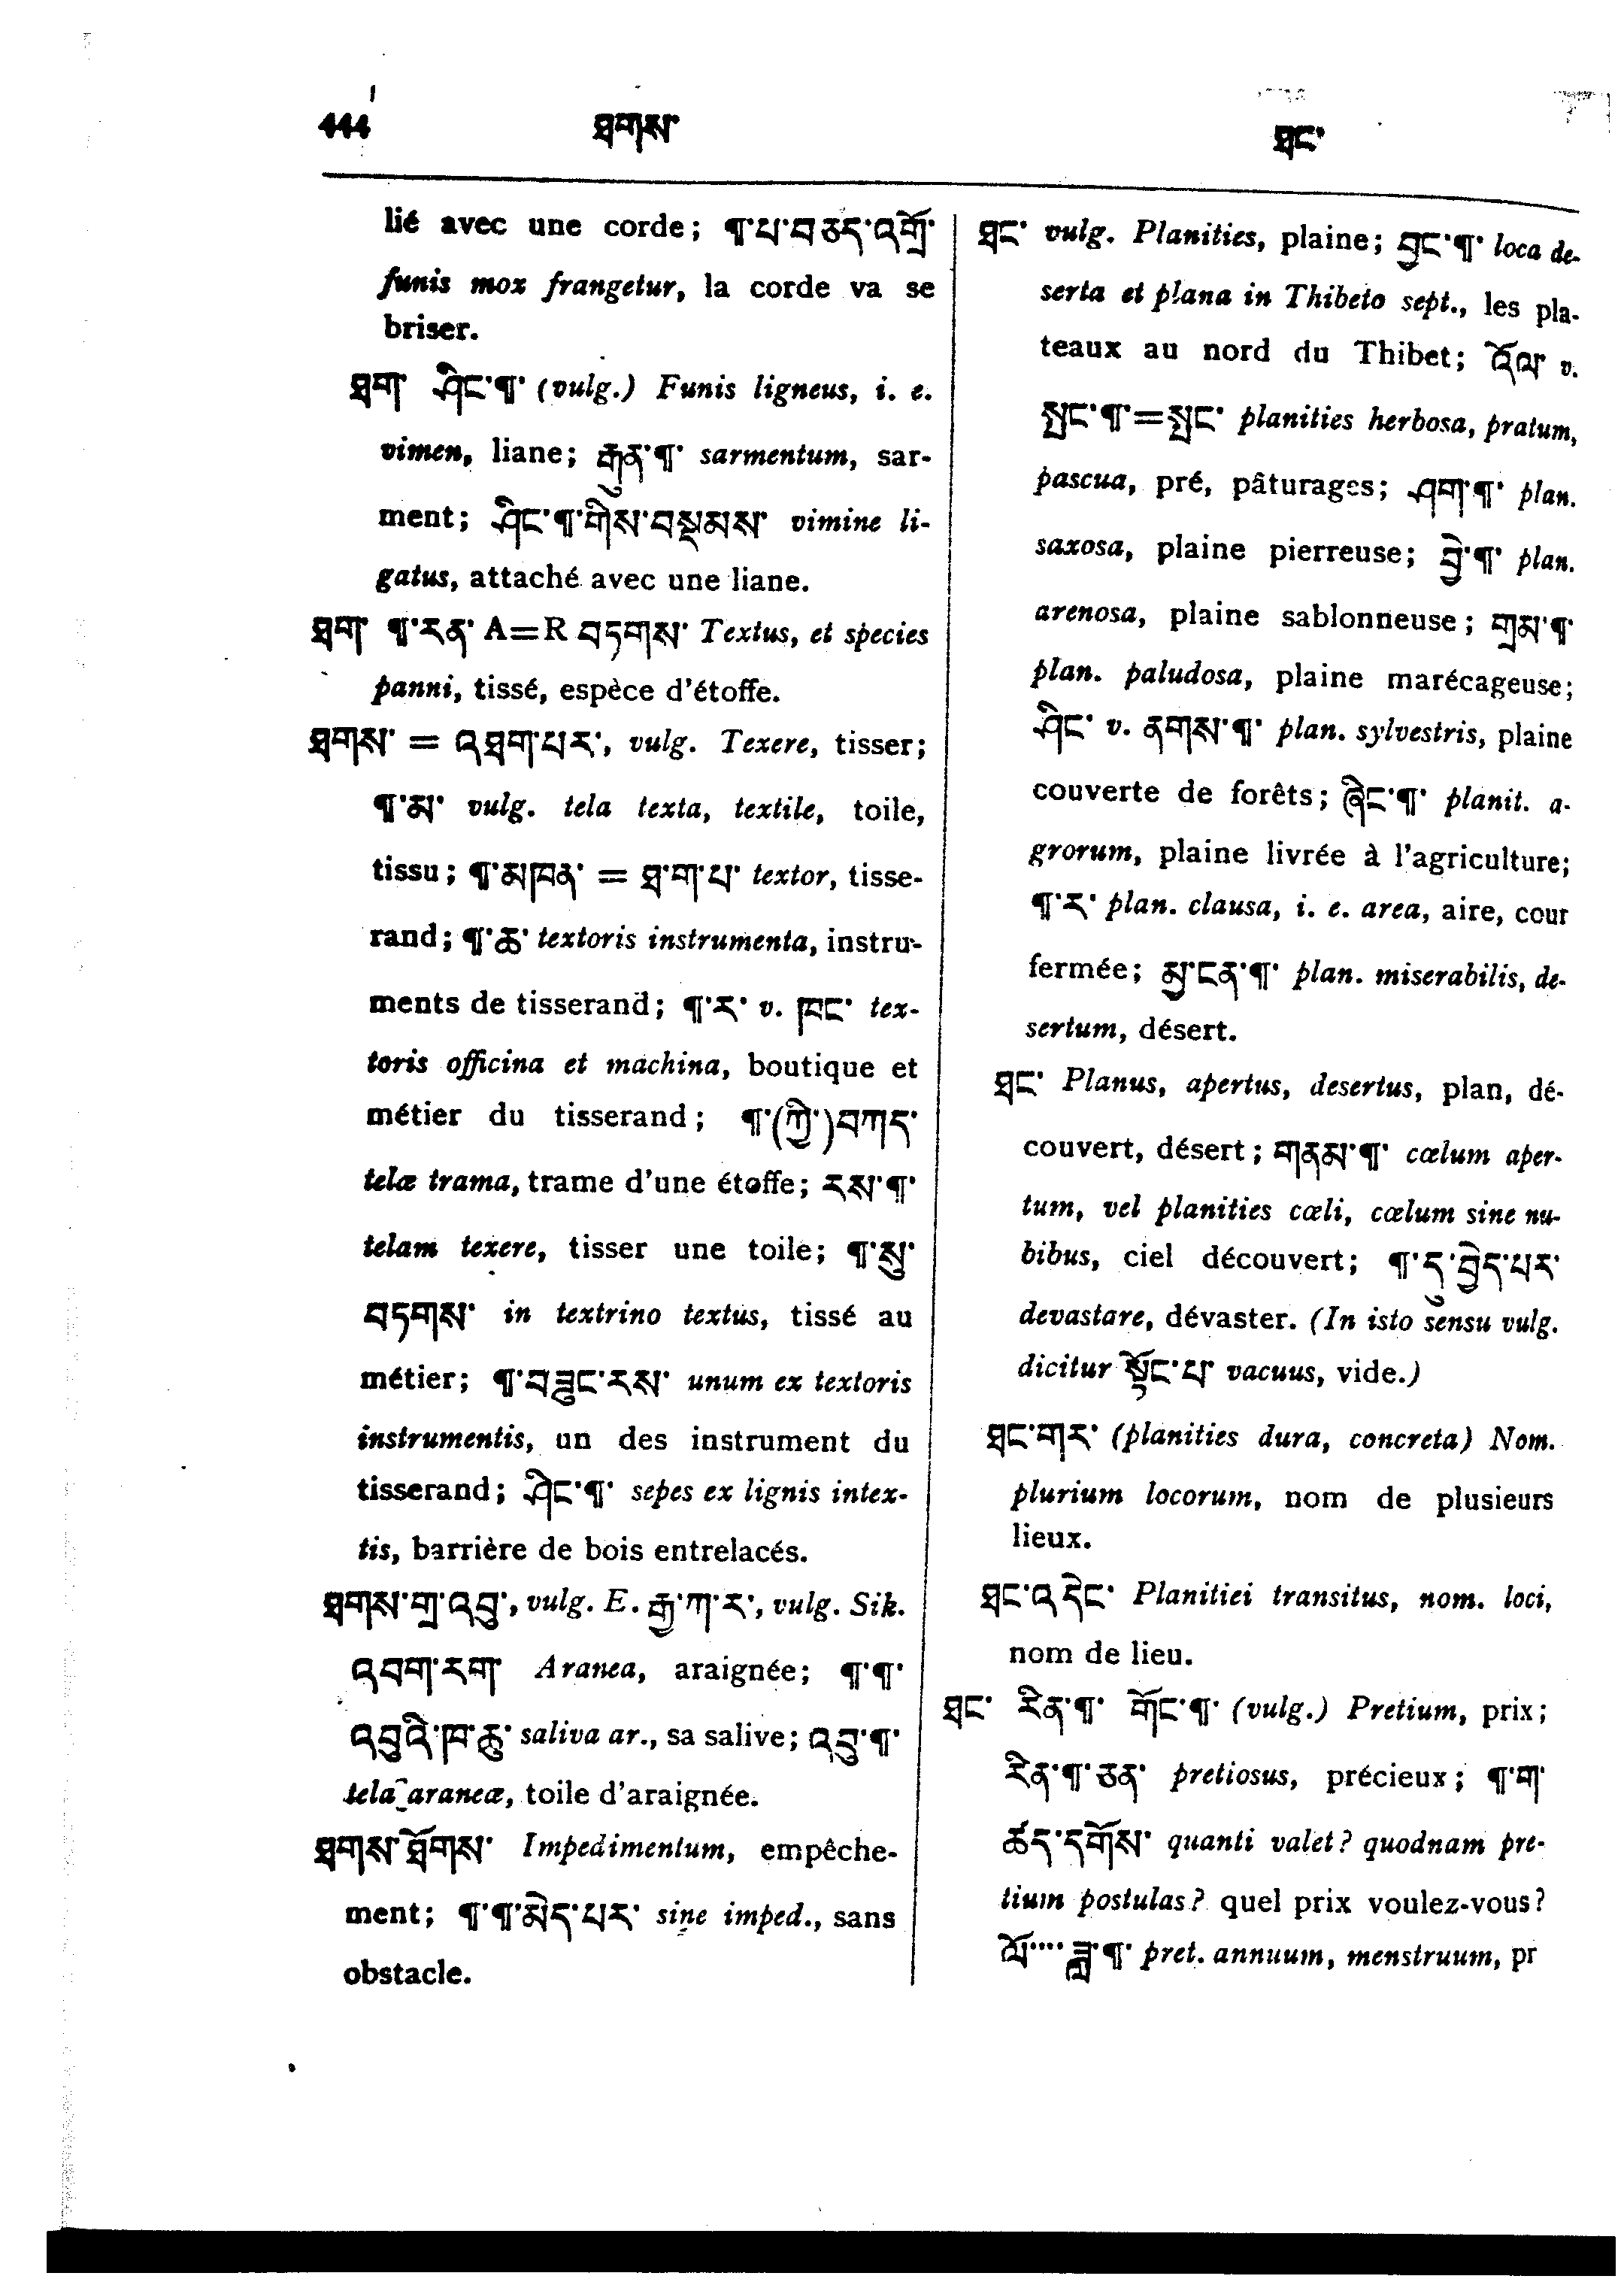 444 ཐགས་ ཐང་
lié avec une corde; ¶་པ་བཅད་འགྲོ་
funis mox frangetur, la corde va se
briser.
ཐག་ ཤིང་¶་ (vulg.) Funis ligneus, i. e.
vimen, liane; རྒུན་¶་ sarmentum, sar-
ment; ཤིང་¶་གིས་བསྡམས་ vimine li-
gatus, attaché avec une liane.
ཐག་ ¶་རན་ A=R བཏགས་ Textus, et species
panni, tissé, espèce d'étoffe.
ཐགས་ = འཐག་པར་, vulg. Texere, tisser;
¶་མ་ vulg. tela texta, textile, toile,
tissu; ¶་མཁན་ = ཐ་ག་པ་ textor, tisse-
rand; ¶་ཆ་ textoris instrumenta, instru-
ments de tisserand; ¶་ར་ v. ཁང་ tex-
toris officina et machina, boutique et
métier du tisserand; ¶་(ཀྱི་)བཀད་
telæ trama, trame d'une étoffe; རས་¶་
telam texere, tisser une toile; ¶་སུ་
བཏགས་ in textrino textus, tissé au
métier; ¶་བཟུང་རས་ unum ex textoris
instrumentis, un des instrument du
tisserand; ཤིང་¶་ sepes ex lignis intex-
tis, barrière de bois entrelacés.
ཐགས་གྲ་འབུ་, vulg. E. རྒྱ་ཀ་ར་, vulg. Sik.
འབག་རག་ Aranea, araignée; ¶་¶་
འབུའི་ཁ་ཆུ་ saliva ar., sa salive; འབུ་¶་
tela araneæ, toile d'araignée.
ཐགས་ཐོགས་ Impedimentum, empêche-
ment; ¶་¶་མེད་པར་ sine imped., sans
obstacle.
ཐང་ vulg. Planities, plaine; བྱང་¶་ loca de-
serta et plana in Thibeto sept., les pla-
teaux au nord du Thibet; འོལ་ v.
སྤང་¶་=སྤང་ planities herbosa, pratum,
pascua, pré, pâturages; ཤག་¶་ plan.
saxosa, plaine pierreuse; བྱེ་¶་ plan.
arenosa, plaine sablonneuse; གྲམ་¶་
plan. paludosa, plaine marécageuse;
ཤིང་ v. ནགས་¶་ plan. sylvestris, plaine
couverte de forêts; ཞིང་¶་ planit. a-
grorum, plaine livrée à l'agriculture;
¶་ར་ plan. clausa, i. e. area, aire, cour
fermée; མྱ་ངན་¶་ plan. miserabilis, de-
sertum, désert.
ཐང་ Planus, apertus, desertus, plan, dé-
couvert, désert; གནམ་¶་ cœlum aper-
tum, vel planities cœli, cœlum sine nu-
bibus, ciel découvert; ¶་དུ་བྱེད་པར་
devastare, dévaster. (In isto sensu vulg.
dicitur སྟོང་པ་ vacuus, vide.)
ཐང་གར་ (planities dura, concreta) Nom.
plurium locorum, nom de plusieurs
lieux.
ཐང་འདེང་ Planitiei transitus, nom. loci,
nom de lieu.
ཐང་ རིན་¶་ གོང་¶་ (vulg.) Pretium, prix;
རིན་¶་ཅན་ pretiosus, précieux; ¶་ག་
ཚད་དགོས་ quanti valet? quodnam pre-
tium postulas? quel prix voulez-vous?
ལོ་... ཟླ་¶་ pret. annuum, menstruum, pr